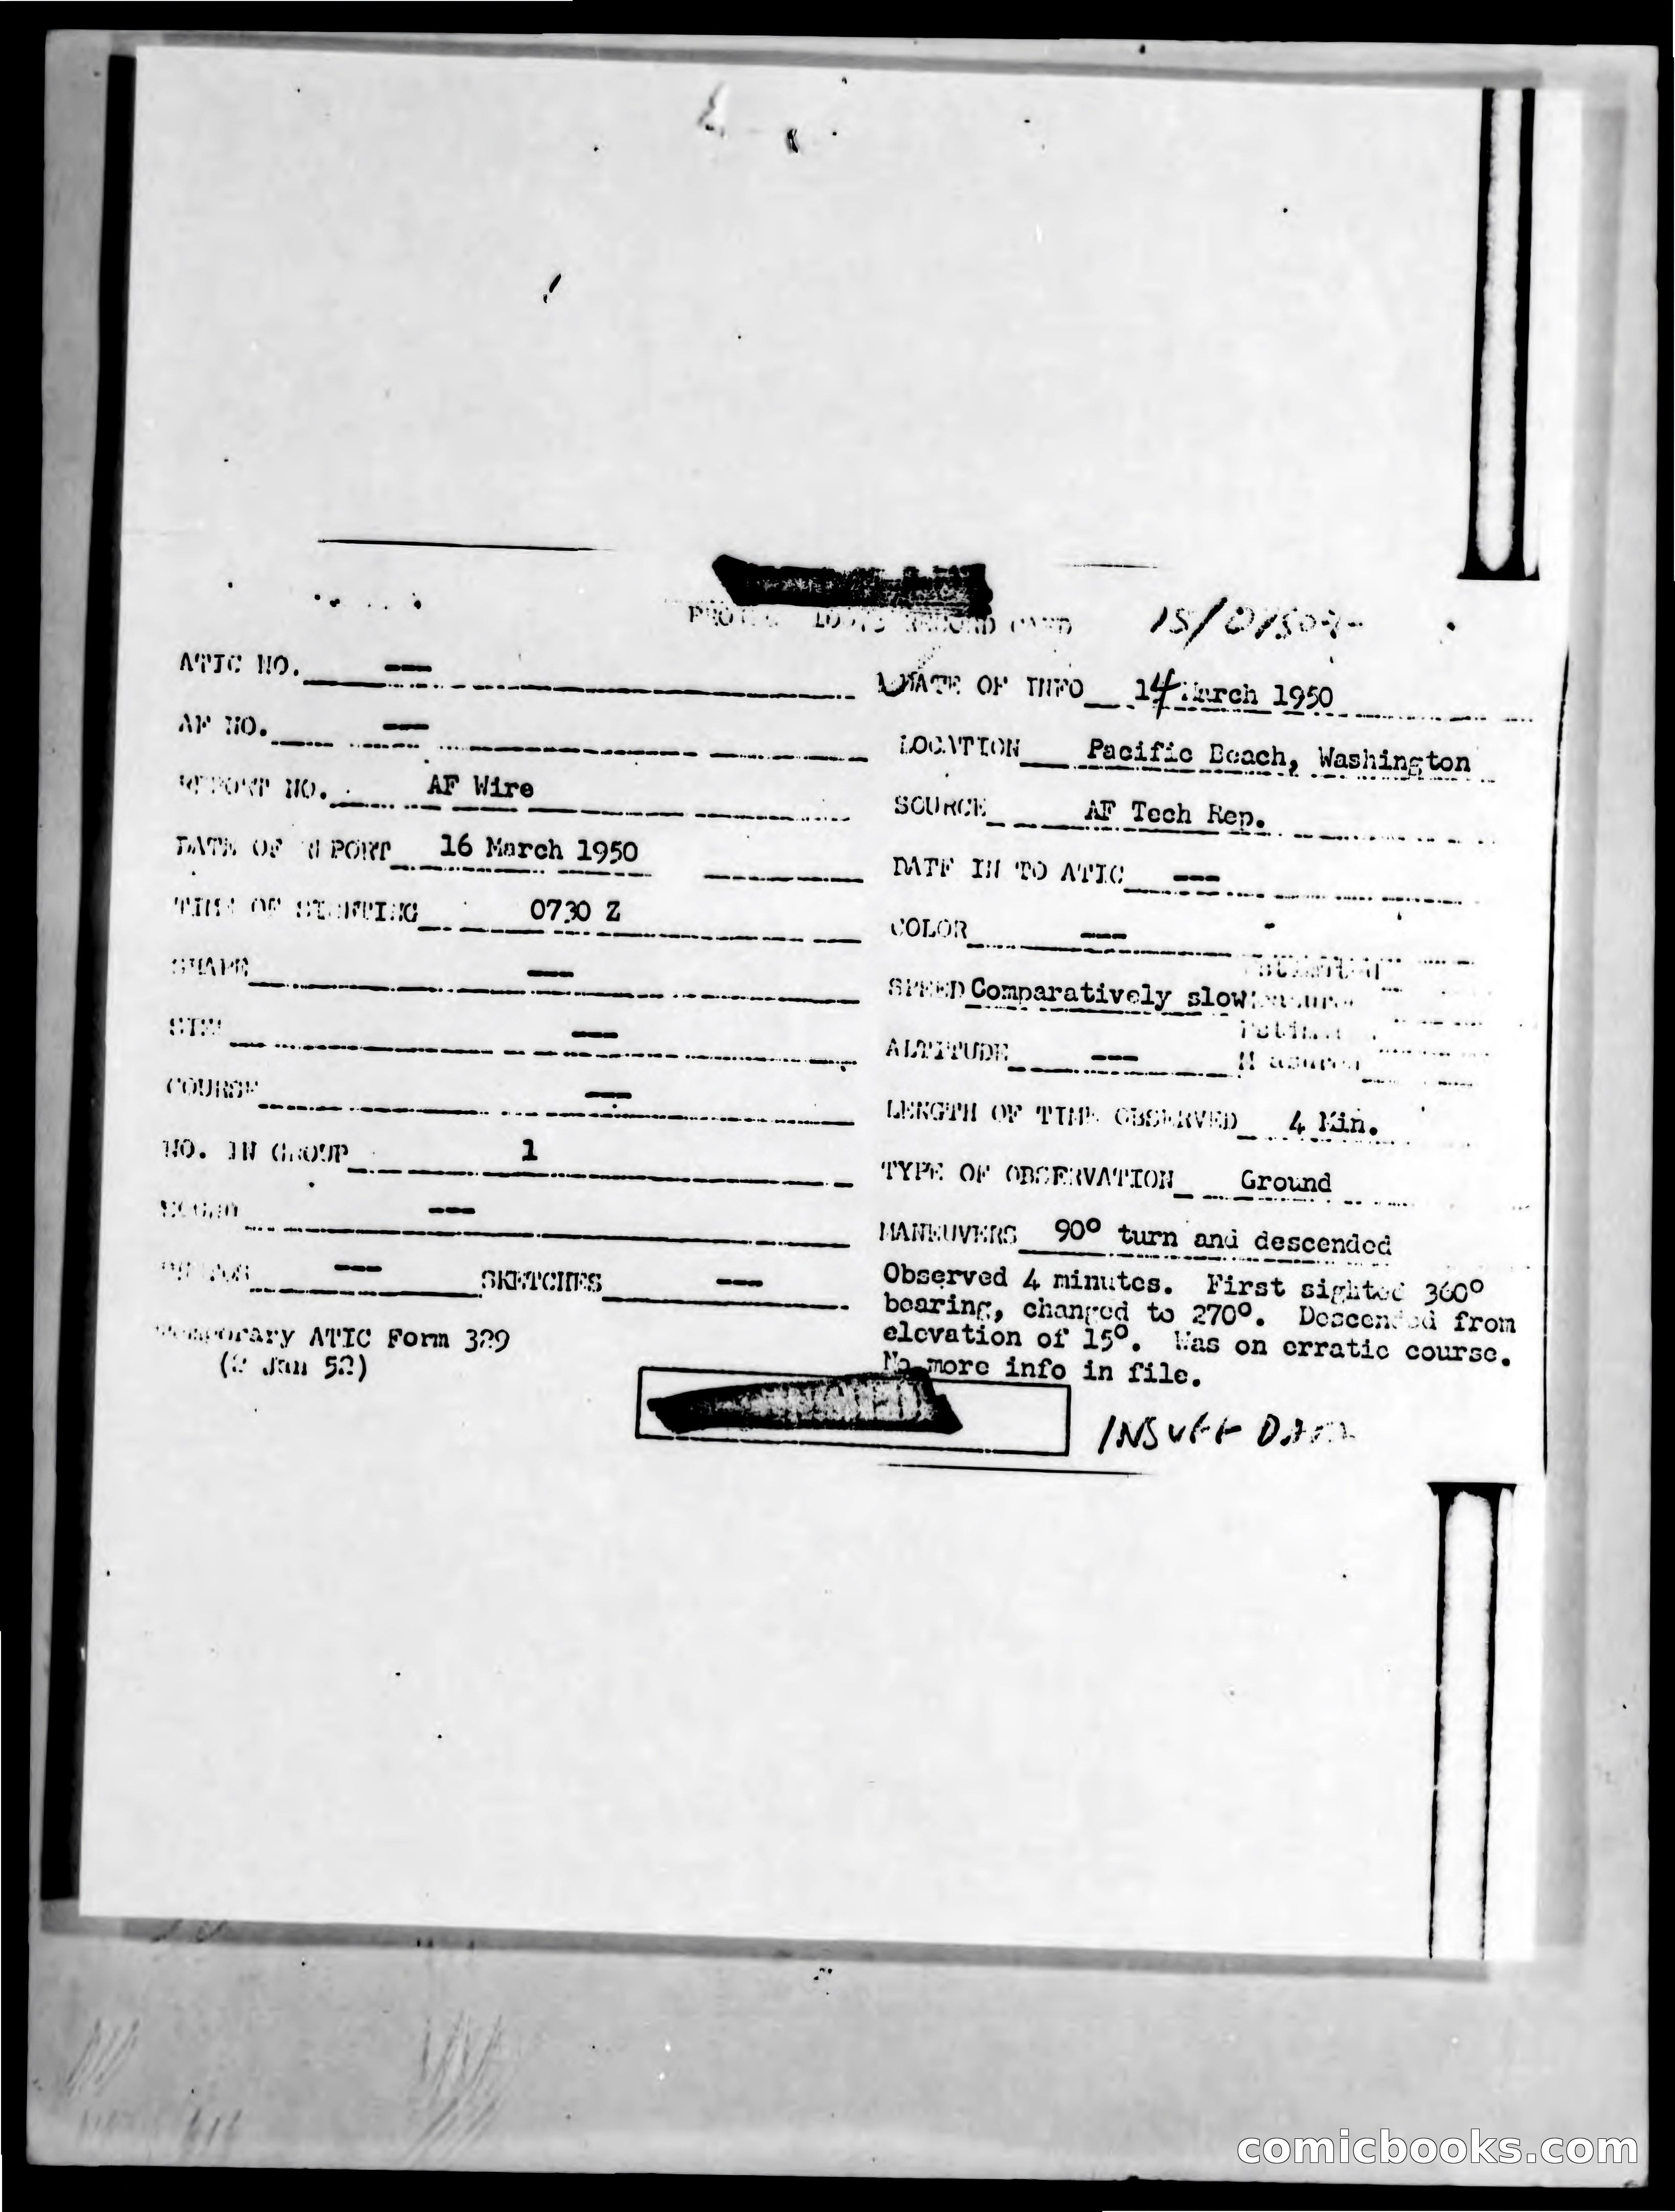 RECORD CARD
ATIC NO. —
DATE OF INFO 14 March 1950
AF NO. —
LOCATION Pacific Beach, Washington
REPORT NO. AF Wire
SOURCE AF Tech Rep.
DATE OF REPORT 16 March 1950
DATE IN TO ATIC —
TIME OF SIGHTING 0730 Z
COLOR —
SHAPE —
SPEED Comparatively slow
SIZE —
ALTITUDE — Measured
COURSE —
LENGTH OF TIME OBSERVED 4 Min.
NO. IN GROUP 1
TYPE OF OBSERVATION Ground
SOUND —
MANEUVERS 90° turn and descended
PHOTOS — SKETCHES —
Observed 4 minutes. First sighted 360°
bearing, changed to 270°. Descended from
elevation of 15°. Was on erratic course.
No more info in file.
Temporary ATIC Form 329
(2 Jan 52)
INSUFF DATA
comicbooks.com